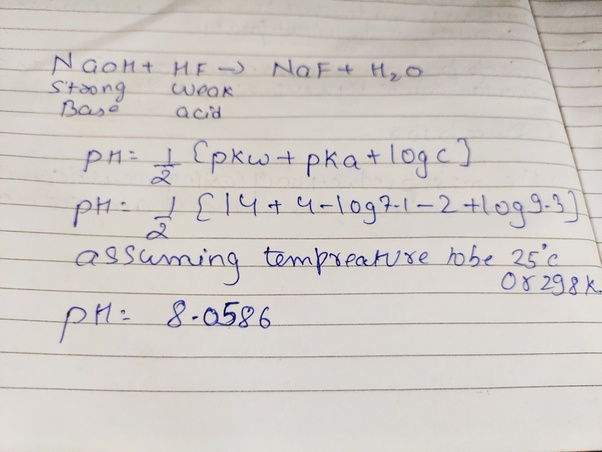 NaOH + HF → NaF + H₂O
Strong weak
Base acid
pH = 1/2 [pKw + pKa + log c]
pH = 1/2 [14 + 4 - log 7.1 - 2 + log 9.3]
assuming tempreature to be 25°c
Or 298 k.
pH = 8.0586